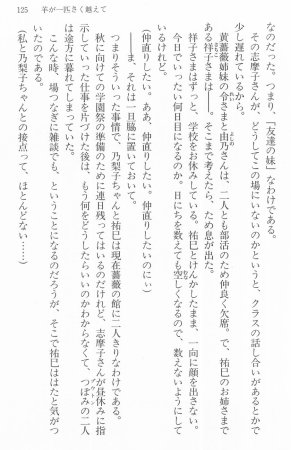 125 羊が一匹さく越えて
なのだった。つまり、「友達の妹」なわけである。
その志摩子さんが、どうしてこの場にいないのかというと、クラスの話し合いがあるとかで
少し遅れているから。
黄薔薇姉妹の令さまと由乃さんは、二人とも部活のため仲良く欠席。で、祐巳のお姉さまで
ある祥子さまは――。そこまで考えたら、ため息が出た。
祥子さまはずっと、学校をお休みしている。祐巳とけんかしたまま、一向に顔を出さない。
今日でいったい何日目になるのか。日にちを数えても空しくなるので、数えないようにして
いるけれど。
(仲直りしたい。ああ、仲直りしたい。仲直りしたいのにぃ)
――ま、それは一旦脇に置いておいて。
つまりそういった事情で、乃梨子ちゃんと祐巳は現在薔薇の館に二人きりなわけである。
秋に向けての学園祭の準備のために連日残ってはいるのだけれど、志摩子さんが昼休みに指
示していった仕事を片づけた後は、もう何をどうしたらいいのかわからなくて、つぼみの二人
は途方に暮れてしまっていた。
こんな時、場つなぎに雑談でも、ということになるのだろうが、そこで祐巳ははたと気がつ
いたのである。
(私と乃梨子ちゃんとの接点って、ほとんどない……)